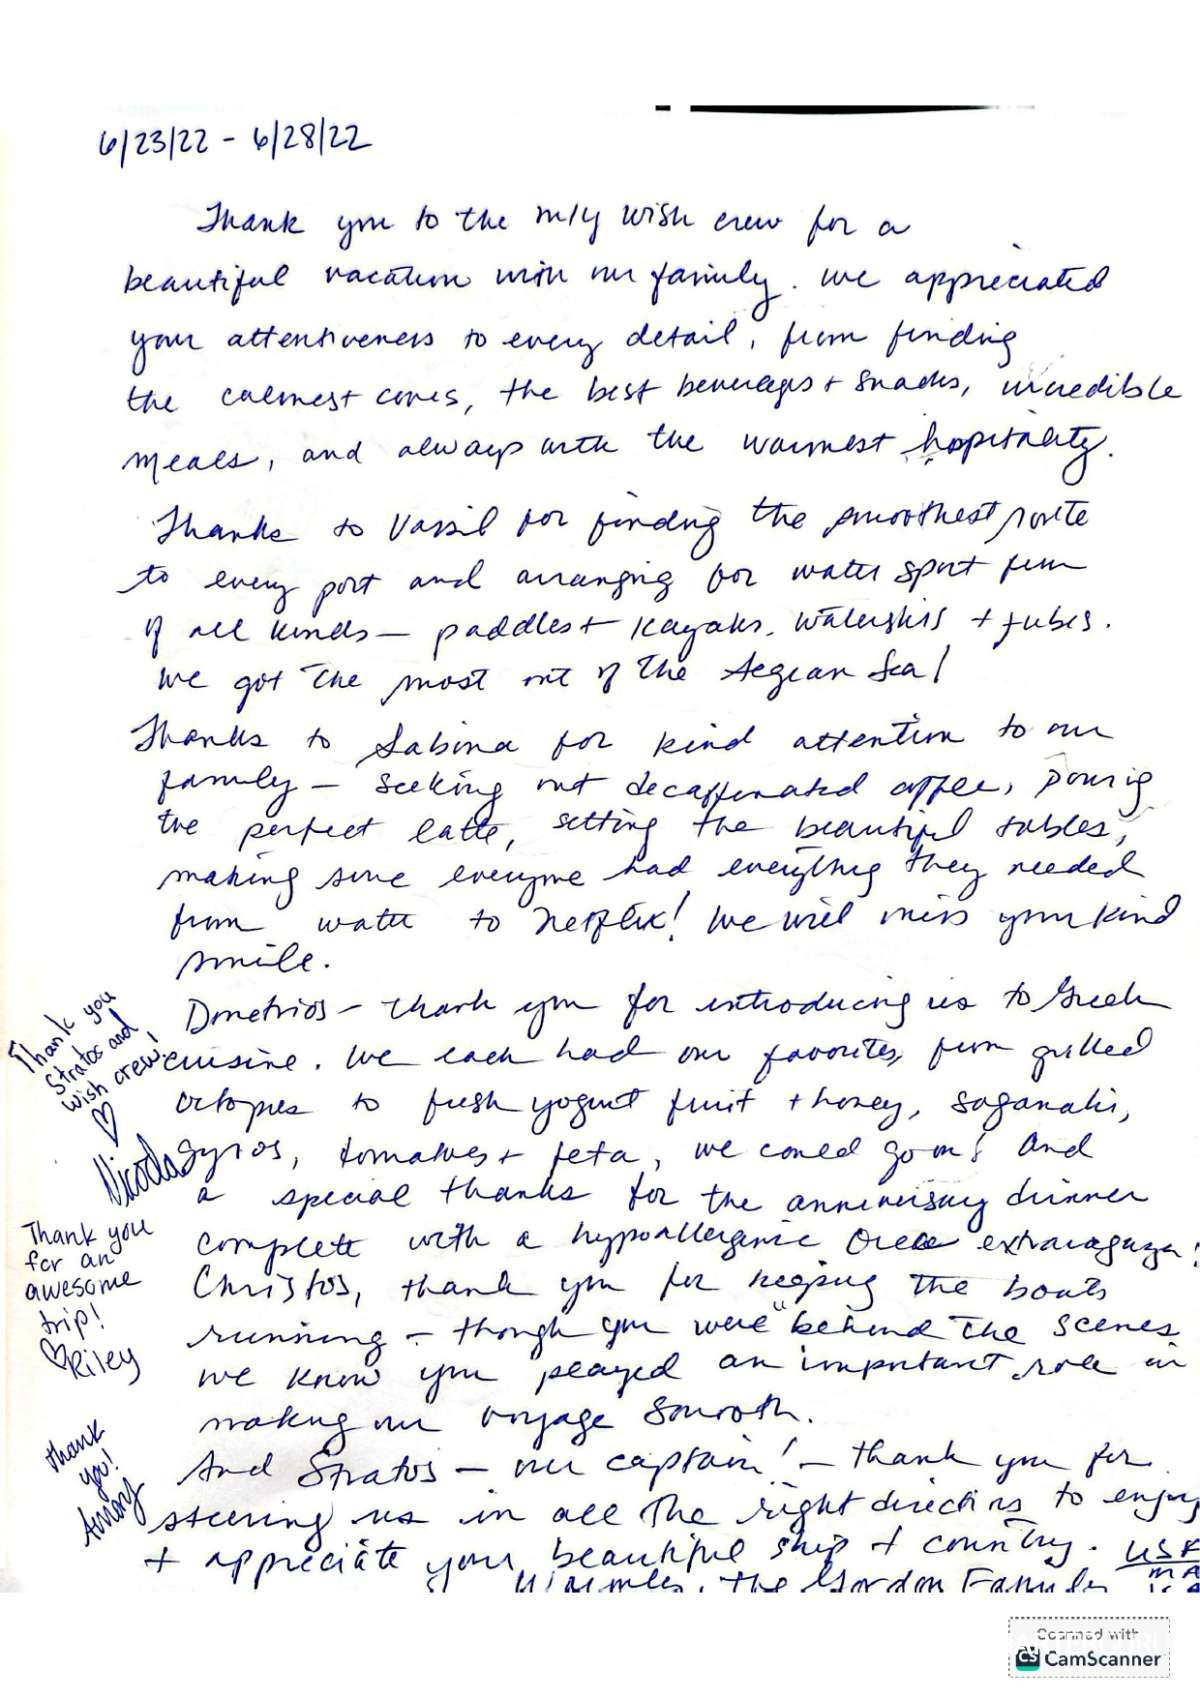 6/23/22 - 6/28/22
Thank you to the m/y Wish crew for a
beautiful vacation with our family. We appreciated
your attentiveness to every detail, from finding
the calmest coves, the best beverages + snacks, incredible
meals, and always with the warmest hospitality.
Thanks to Vassil for finding the smoothest route
to every port and arranging for water sport fun
of all kinds - paddles + kayaks, waterskis + tubes.
We got the most out of the Aegean Sea!
Thanks to Sabina for kind attention to our
family - seeking out decaffenated coffee, pouring
the perfect latte, setting the beautiful tables,
making sure everyone had everything they needed
from water to Netflix! We will miss your kind
smile.
Dmetrios - thank you for introducing us to Greek
cuisine. We each had our favorites, from grilled
octopus to fresh yogurt fruit + honey, saganaki,
gyros, tomatoes + feta, we could go on! And
a special thanks for the anniversary dinner
complete with a hypoallergenic Oreo extravaganza!
Christos, thank you for keeping the boats
running - though you were "behind the scenes
we know you played an important role in
making our voyage smooth.
And Stratos - our captain! - thank you for
steering us in all the right directions to enjoy
+ appreciate your beautiful ship + country.
the Gordon Family
USA
MA
Thank you
Stratos and
wish crew!
♡
Nicola
Thank you
for an
awesome
trip!
♡Riley
Thank
you!
Scanned with
CS CamScanner